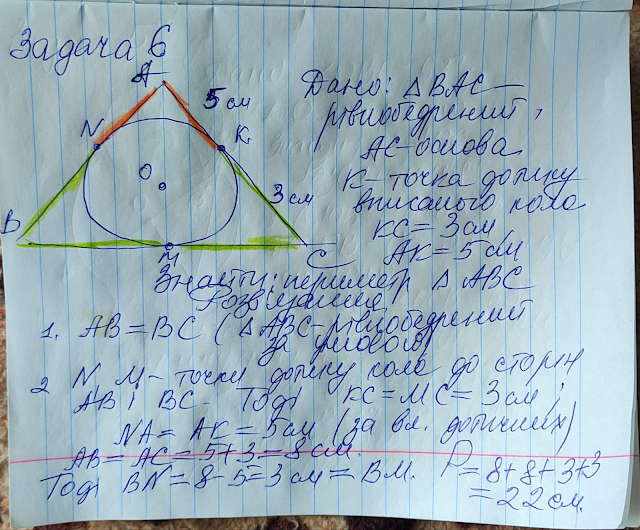 Задача 6
A
5 см
N
K
O
3 см
B
M
C
Дано: △ BAC
рівнобедрений,
AC-основа
K- точка дотику
вписаного кола
KC = 3 см
AK = 5 см
Знайти: периметр △ ABC
Розв'язання
1. AB = BC ( △ ABC- рівнобедрений
за умовою)
2 N, M- точки дотику кола до сторін
AB і BC. Тоді KC = MC = 3 см,
NA = AK = 5 см (за вл. дотичних)
AB = AC = 5+3 = 8 см.
Тоді BN = 8-5 = 3 см = BM. P = 8+8+3+3
= 22 см.